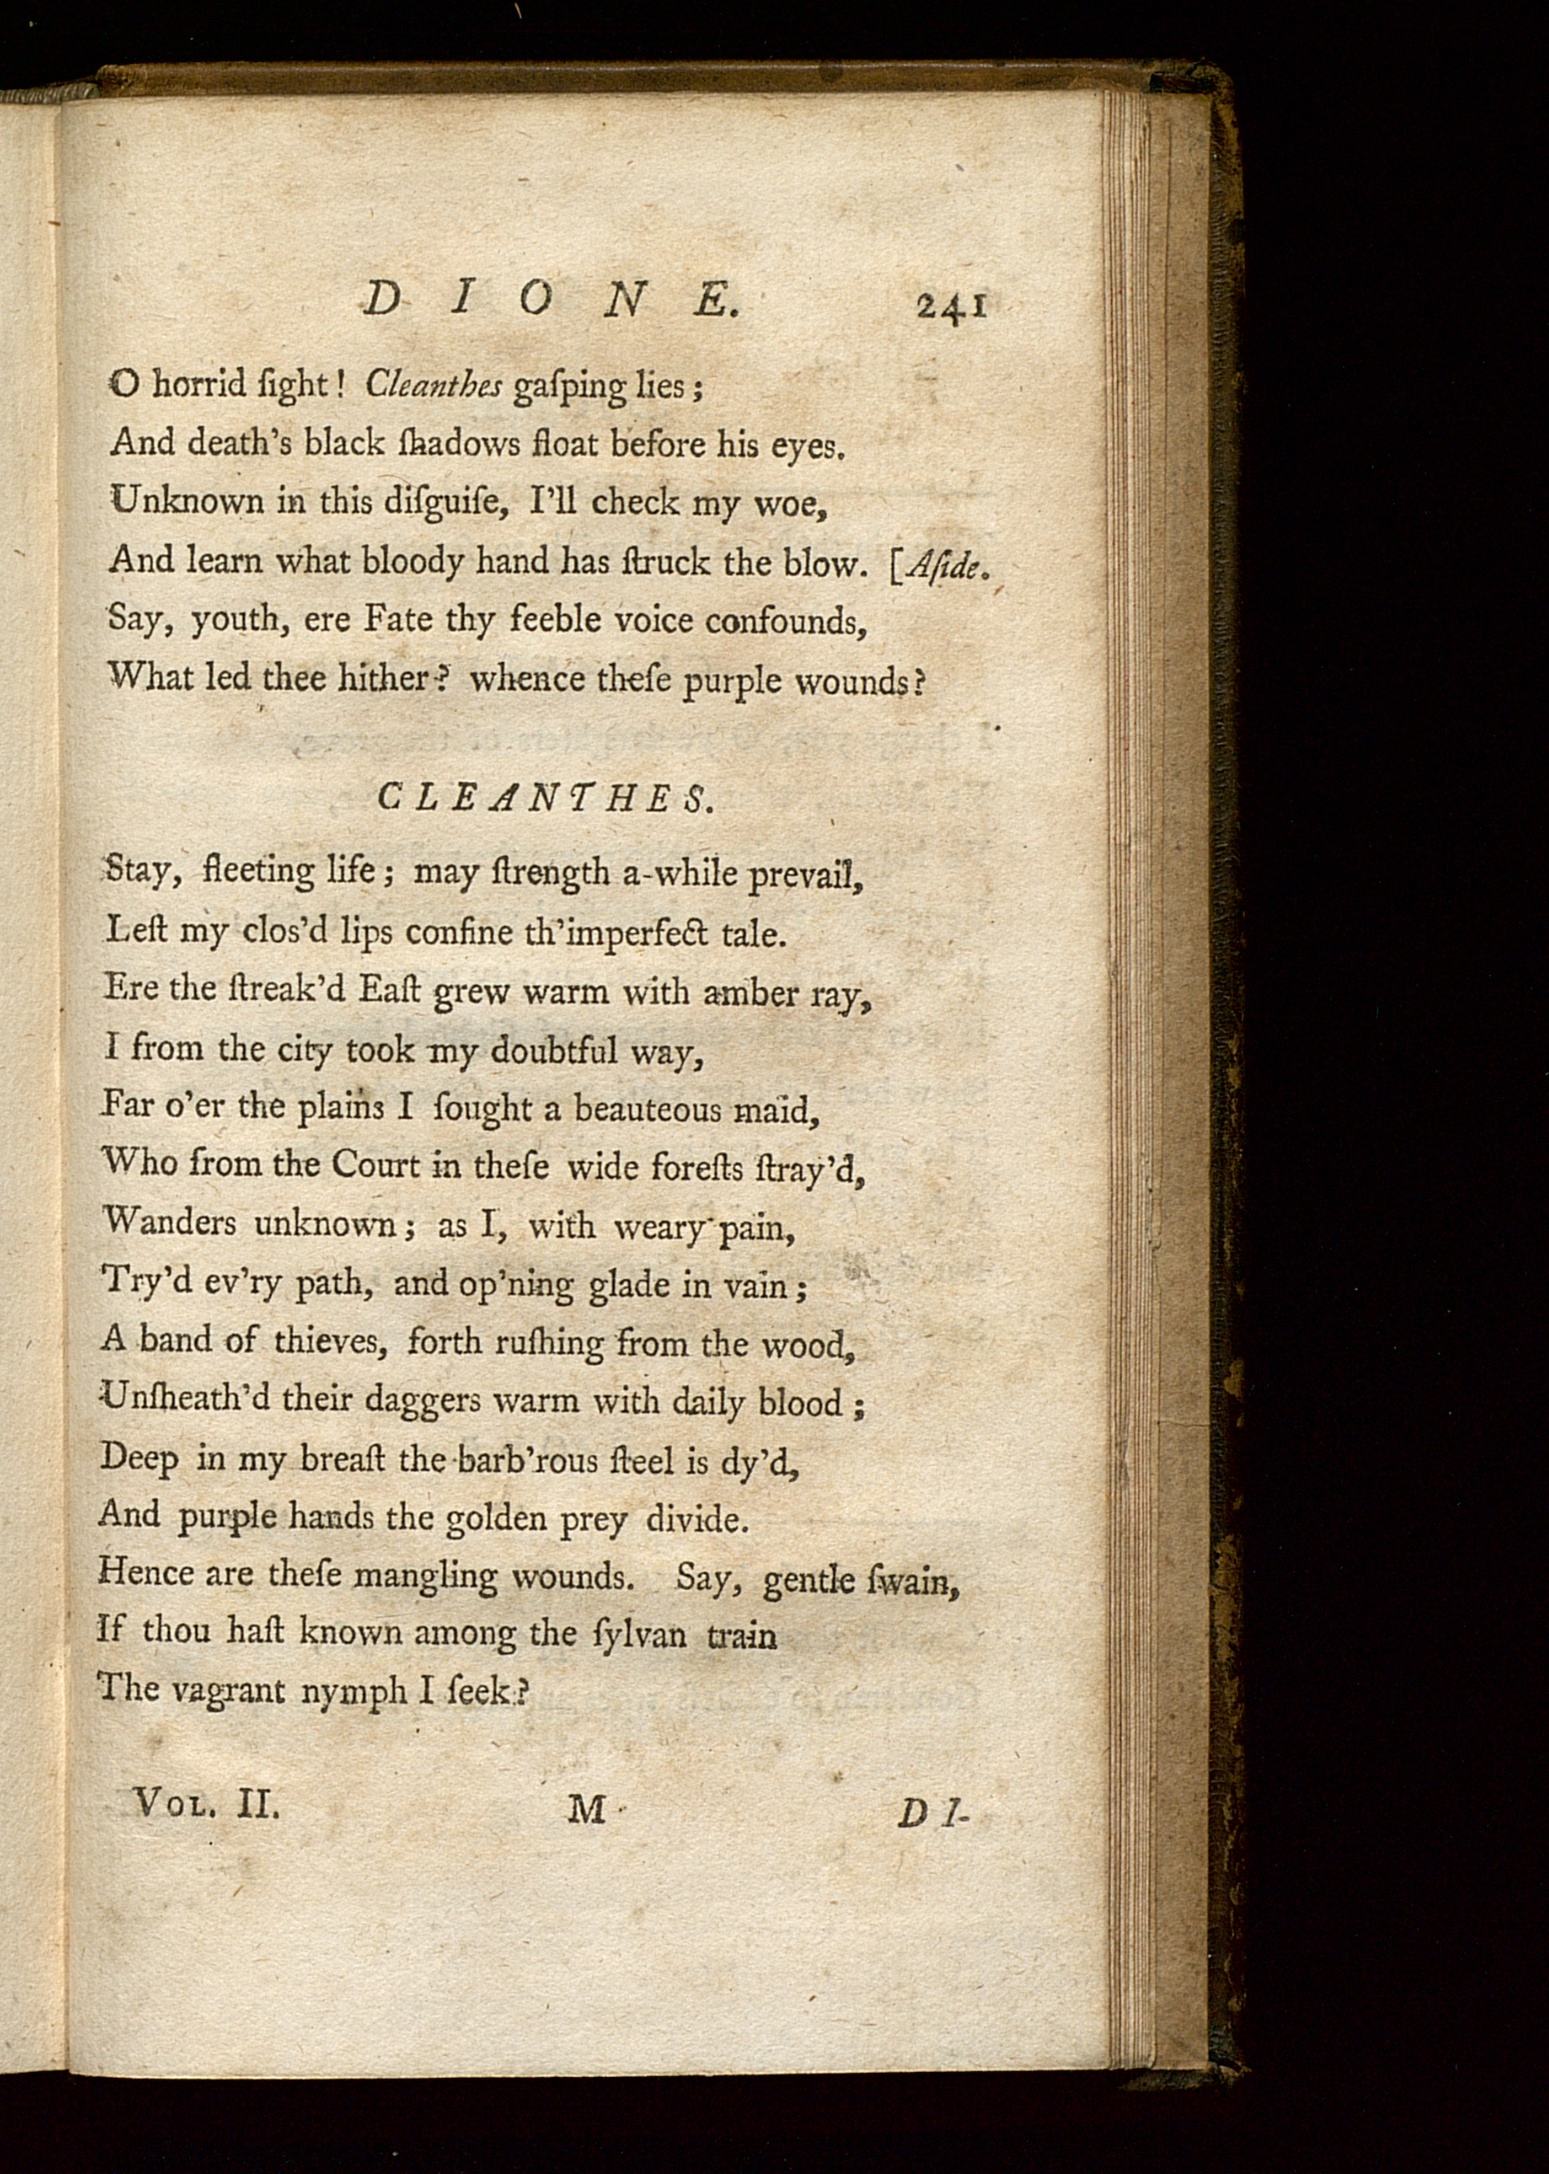 D I O N E. 241
O horrid ſight! Cleanthes gaſping lies;
And death's black ſhadows float before his eyes.
Unknown in this diſguiſe, I'll check my woe,
And learn what bloody hand has ſtruck the blow. [Aſide.
Say, youth, ere Fate thy feeble voice confounds,
What led thee hither? whence theſe purple wounds?
CLEANTHES.
Stay, fleeting life; may ſtrength a-while prevail,
Leſt my clos'd lips confine th'imperfect tale.
Ere the ſtreak'd Eaſt grew warm with amber ray,
I from the city took my doubtful way,
Far o'er the plains I ſought a beauteous maid,
Who from the Court in theſe wide foreſts ſtray'd,
Wanders unknown; as I, with weary pain,
Try'd ev'ry path, and op'ning glade in vain;
A band of thieves, forth ruſhing from the wood,
Unſheath'd their daggers warm with daily blood;
Deep in my breaſt the barb'rous ſteel is dy'd,
And purple hands the golden prey divide.
Hence are theſe mangling wounds. Say, gentle ſwain,
If thou haſt known among the ſylvan train
The vagrant nymph I ſeek?
VOL. II. M D I-